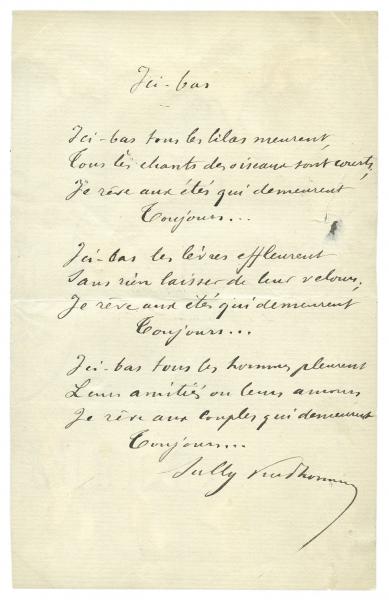 Ici-bas
Ici-bas tous les lilas meurent,
Tous les chants des oiseaux sont courts,
Je rêve aux étés qui demeurent
Toujours...
Ici-bas les lèvres effleurent
Sans rien laisser de leur velours,
Je rêve aux étés qui demeurent
Toujours...
Ici-bas tous les hommes pleurent
Leurs amitiés ou leurs amours
Je rêve aux couples qui demeurent
Toujours...
Sully Prudhomme